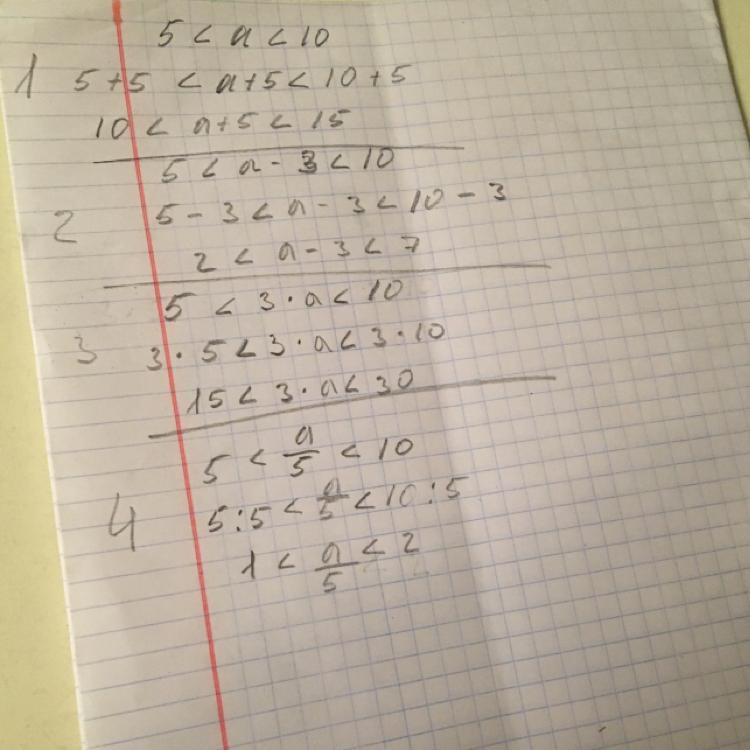 5 < a < 10
1 5+5 < a+5 < 10+5
10 < a+5 < 15
5 < a - 3 < 10
2 5 - 3 < a - 3 < 10 - 3
2 < a - 3 < 7
5 < 3 · a < 10
3 3 · 5 < 3 · a < 3 · 10
15 < 3 · a < 30
5 < a/5 < 10
4 5:5 < a/5 < 10:5
1 < a/5 < 2